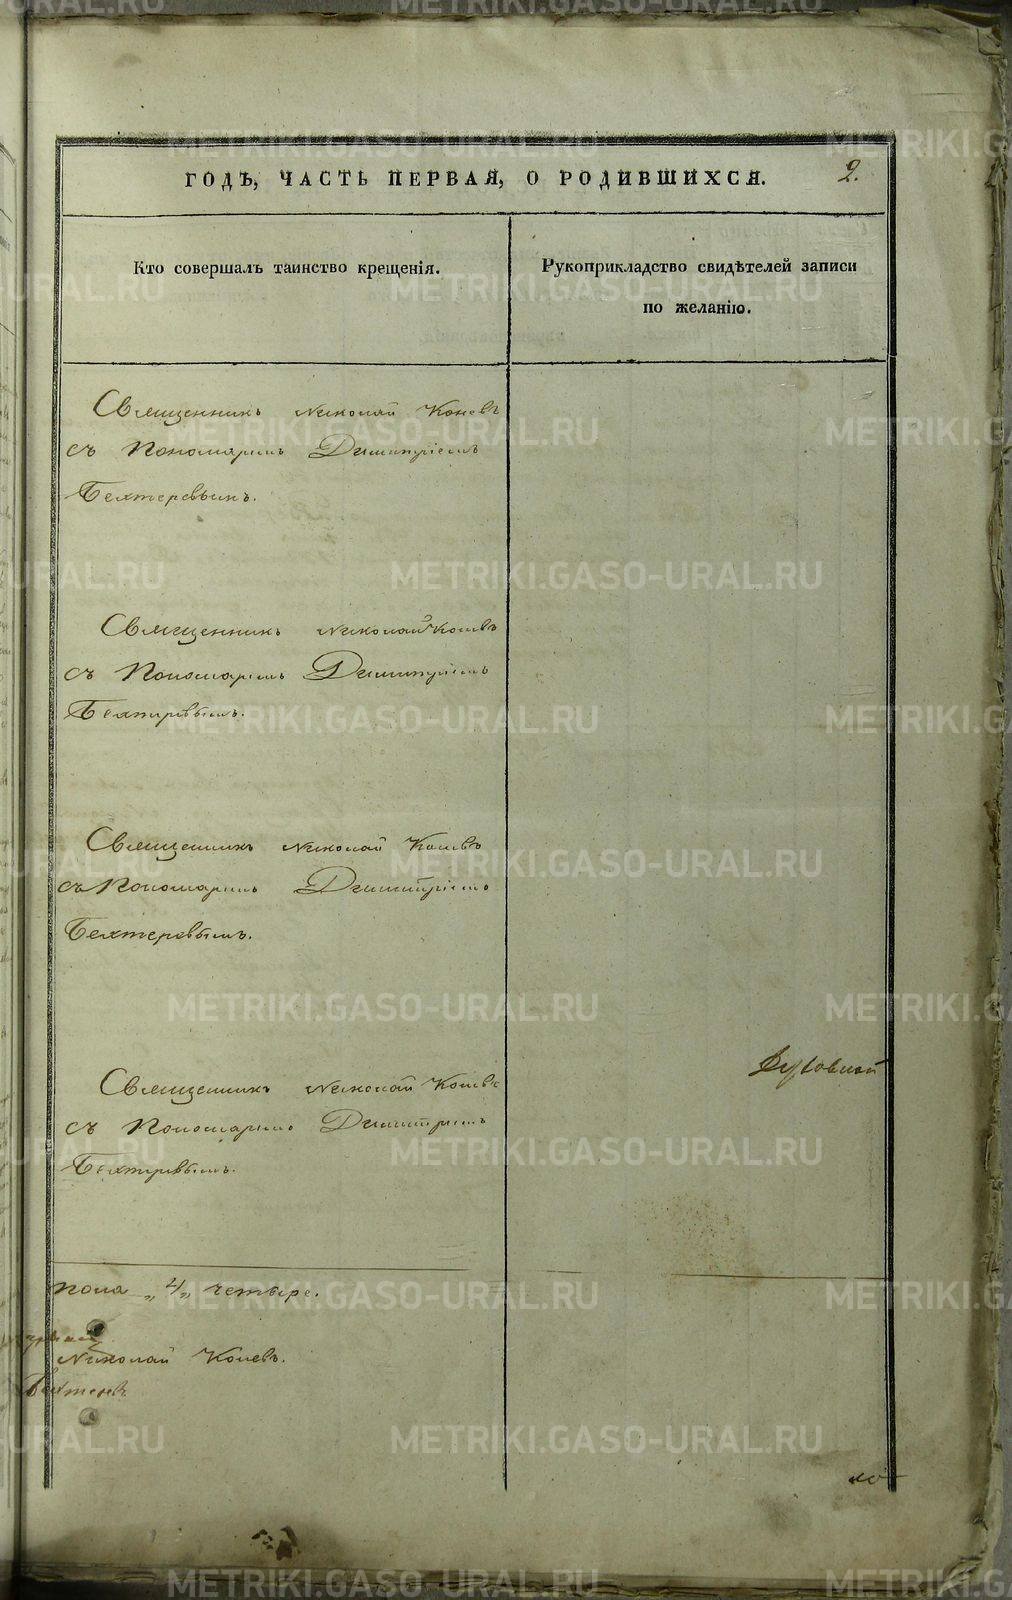 ГОДЪ, ЧАСТЬ ПЕРВАЯ, О РОДИВШИХСЯ.
2.
Кто совершалъ таинство крещенія.
Рукоприкладство свидѣтелей записи
по желанію.
Священникъ Николай Коневъ
съ Пономаремъ Димитріемъ
Бехтеревымъ.
Священникъ Николай Коневъ
съ Пономаремъ Димитріемъ
Бехтеревымъ.
Священникъ Николай Коневъ
съ Пономаремъ Димитріемъ
Бехтеревымъ.
Священникъ Николай Коневъ
съ Пономаремъ Димитріемъ
Бехтеревымъ.
Духовной
пола „4„ четыре.
Николай Коневъ.
METRIKI.GASO-URAL.RU